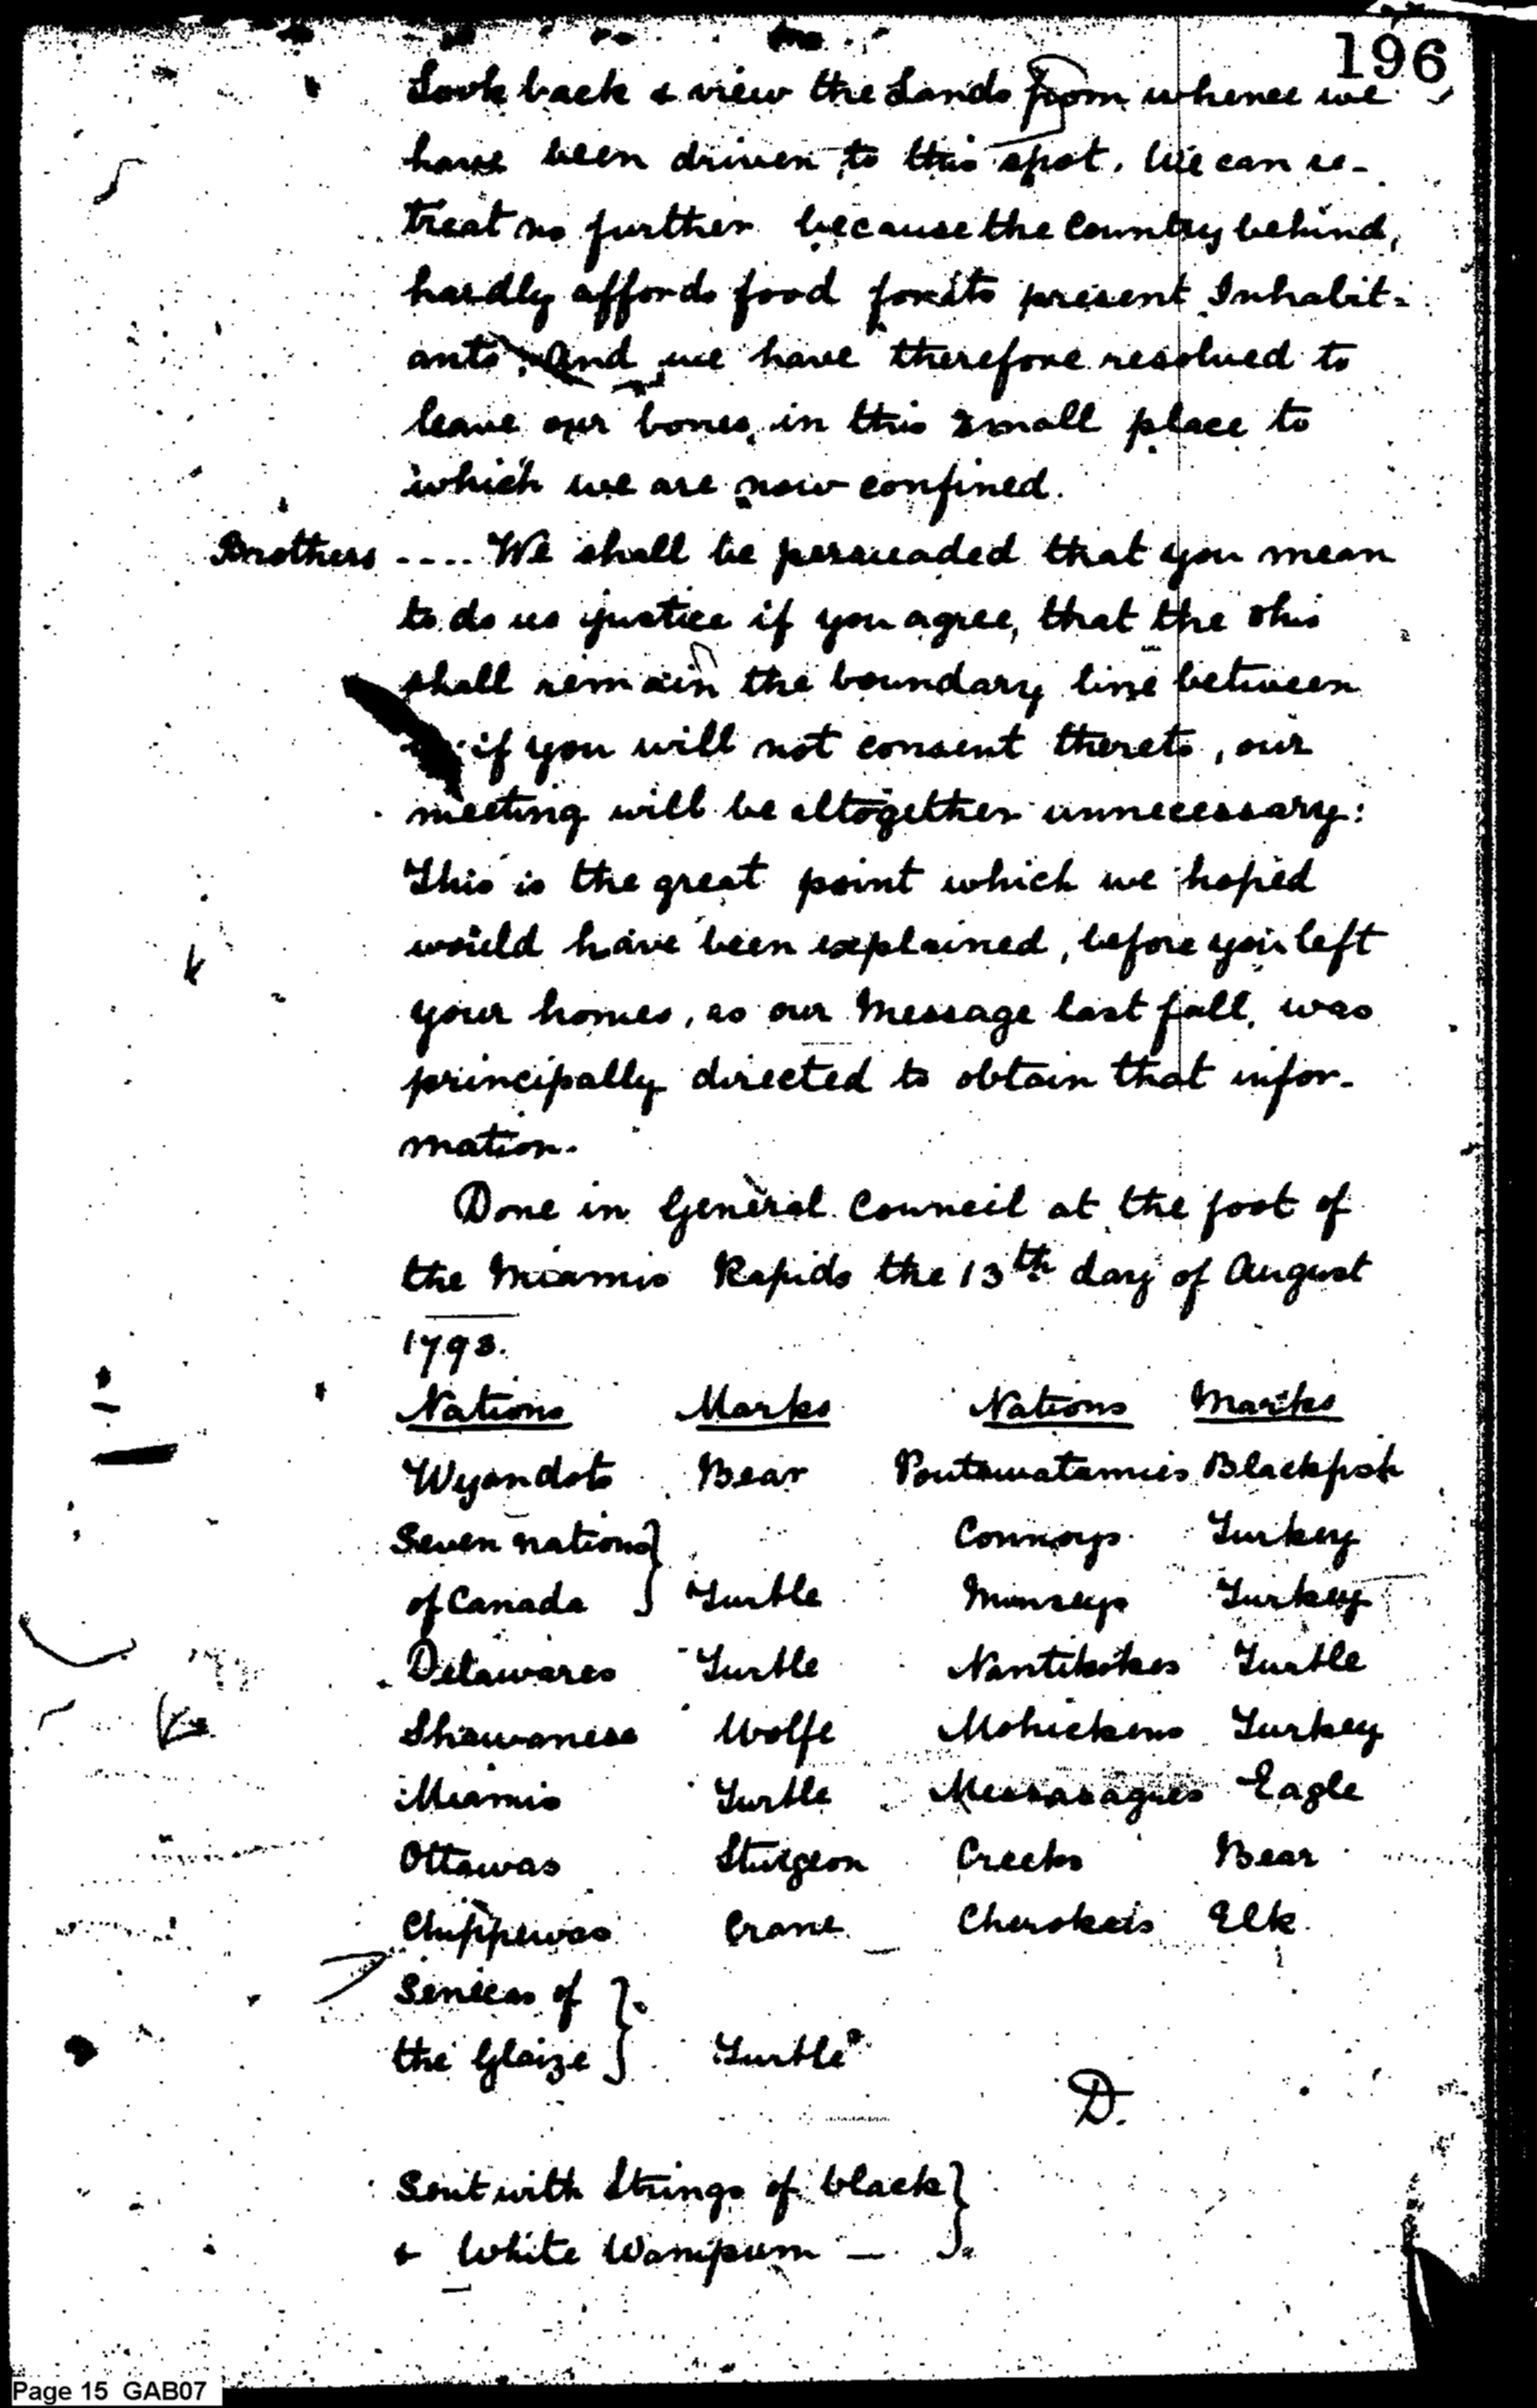 196
Look back & view the Lands from whence we
have been driven to this spot. We can re-
treat no further because the Country behind,
hardly affords food for its present Inhabit-
ants, And we have therefore resolved to
leave our bones, in this small place to
which we are now confined.
Brothers .... We shall be persuaded that you mean
to do us justice if you agree, that the Ohio
shall remain the boundary line between
if you will not consent thereto, our
meeting will be altogether unnecessary:
This is the great point which we hoped
would have been explained, before you left
your homes, as our Message last fall, was
principally directed to obtain that infor-
mation.
Done in General Council at the foot of
the Miamis Rapids the 13th day of August
1793.
Nations Marks Nations Marks
Wyandots Bear Poutawatamies Blackfish
Seven nations} Connoys Turkey
of Canada } Turtle Munseys Turkey
Delawares Turtle Nantikokes Turtle
Shawanese Wolfe Mohickens Turkey
Miamis Turtle Messasagues Eagle
Ottawas Sturgeon Creeks Bear
Chippewas Crane Cherokees Elk
Senecas of }
the Glaize } Turtle
D.
Sent with Strings of black }
& White Wampum — }
Page 15 GAB07